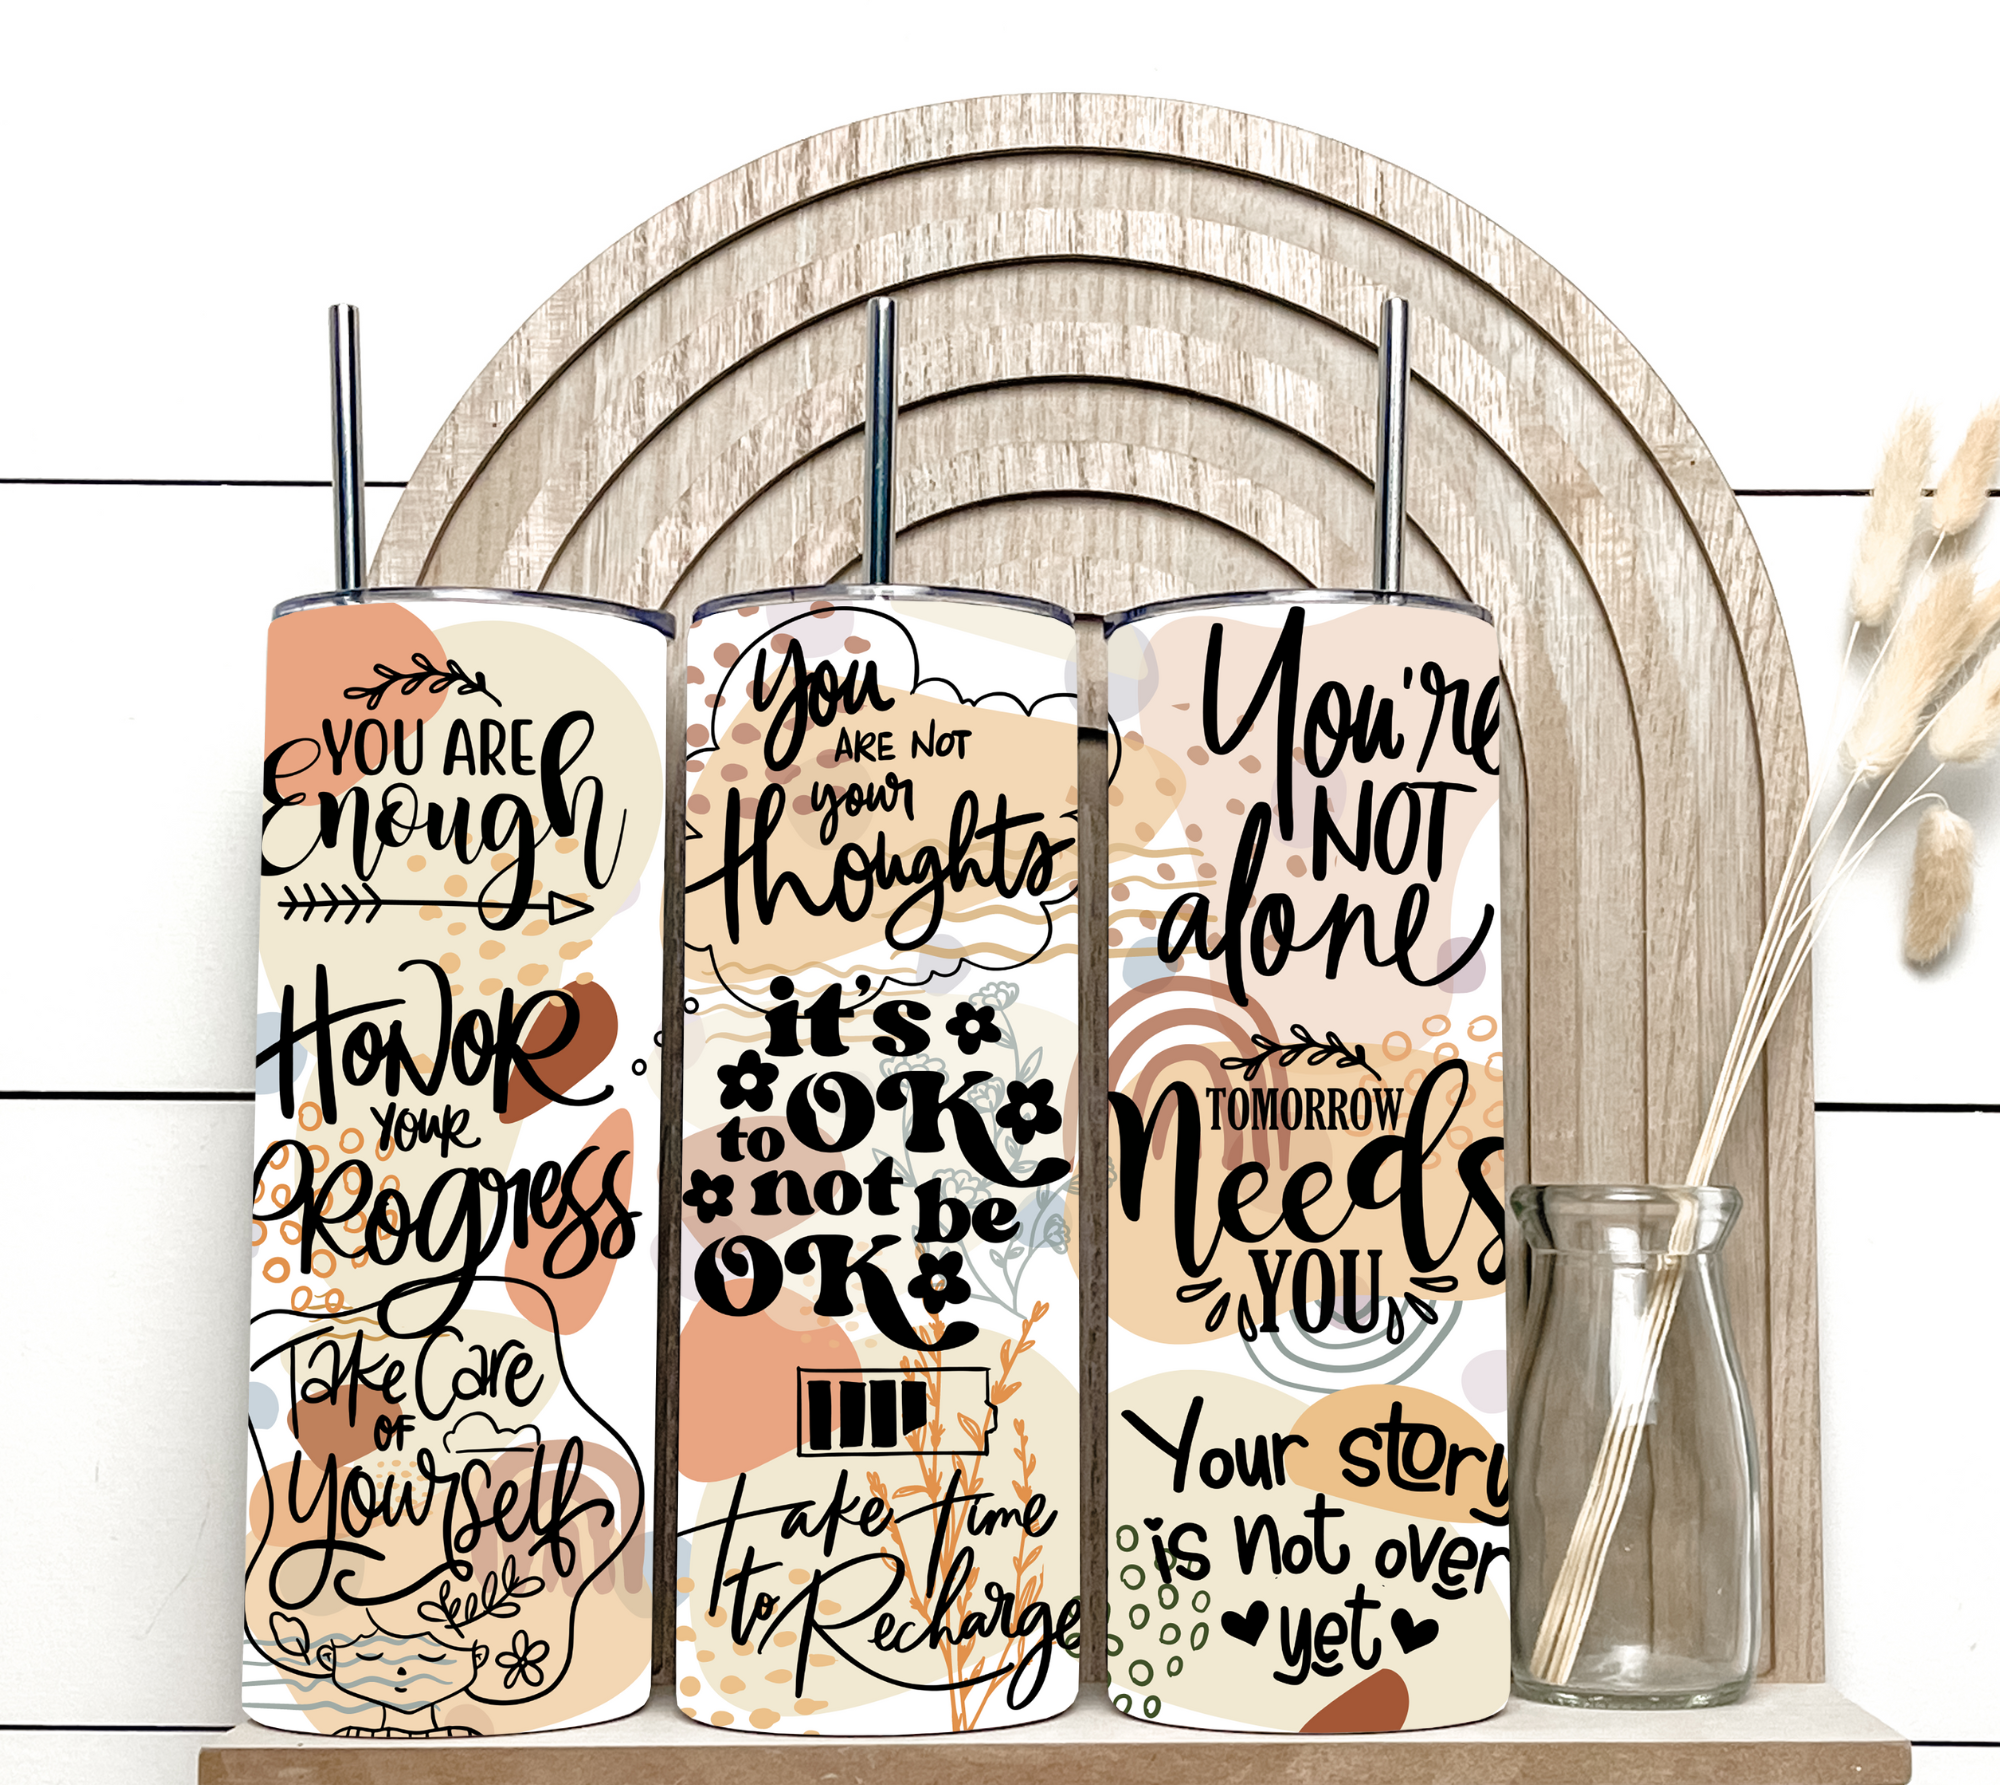 YOU ARE
Enough
HONOR
YOUR
PROgress
Take Care
OF
yourself
You
ARE NOT
your
thoughts
it's
OK
to
not be
OK
take time
to Recharge
You're
NOT
alone
TOMORROW
Needs
YOU
Your story
is not over
yet